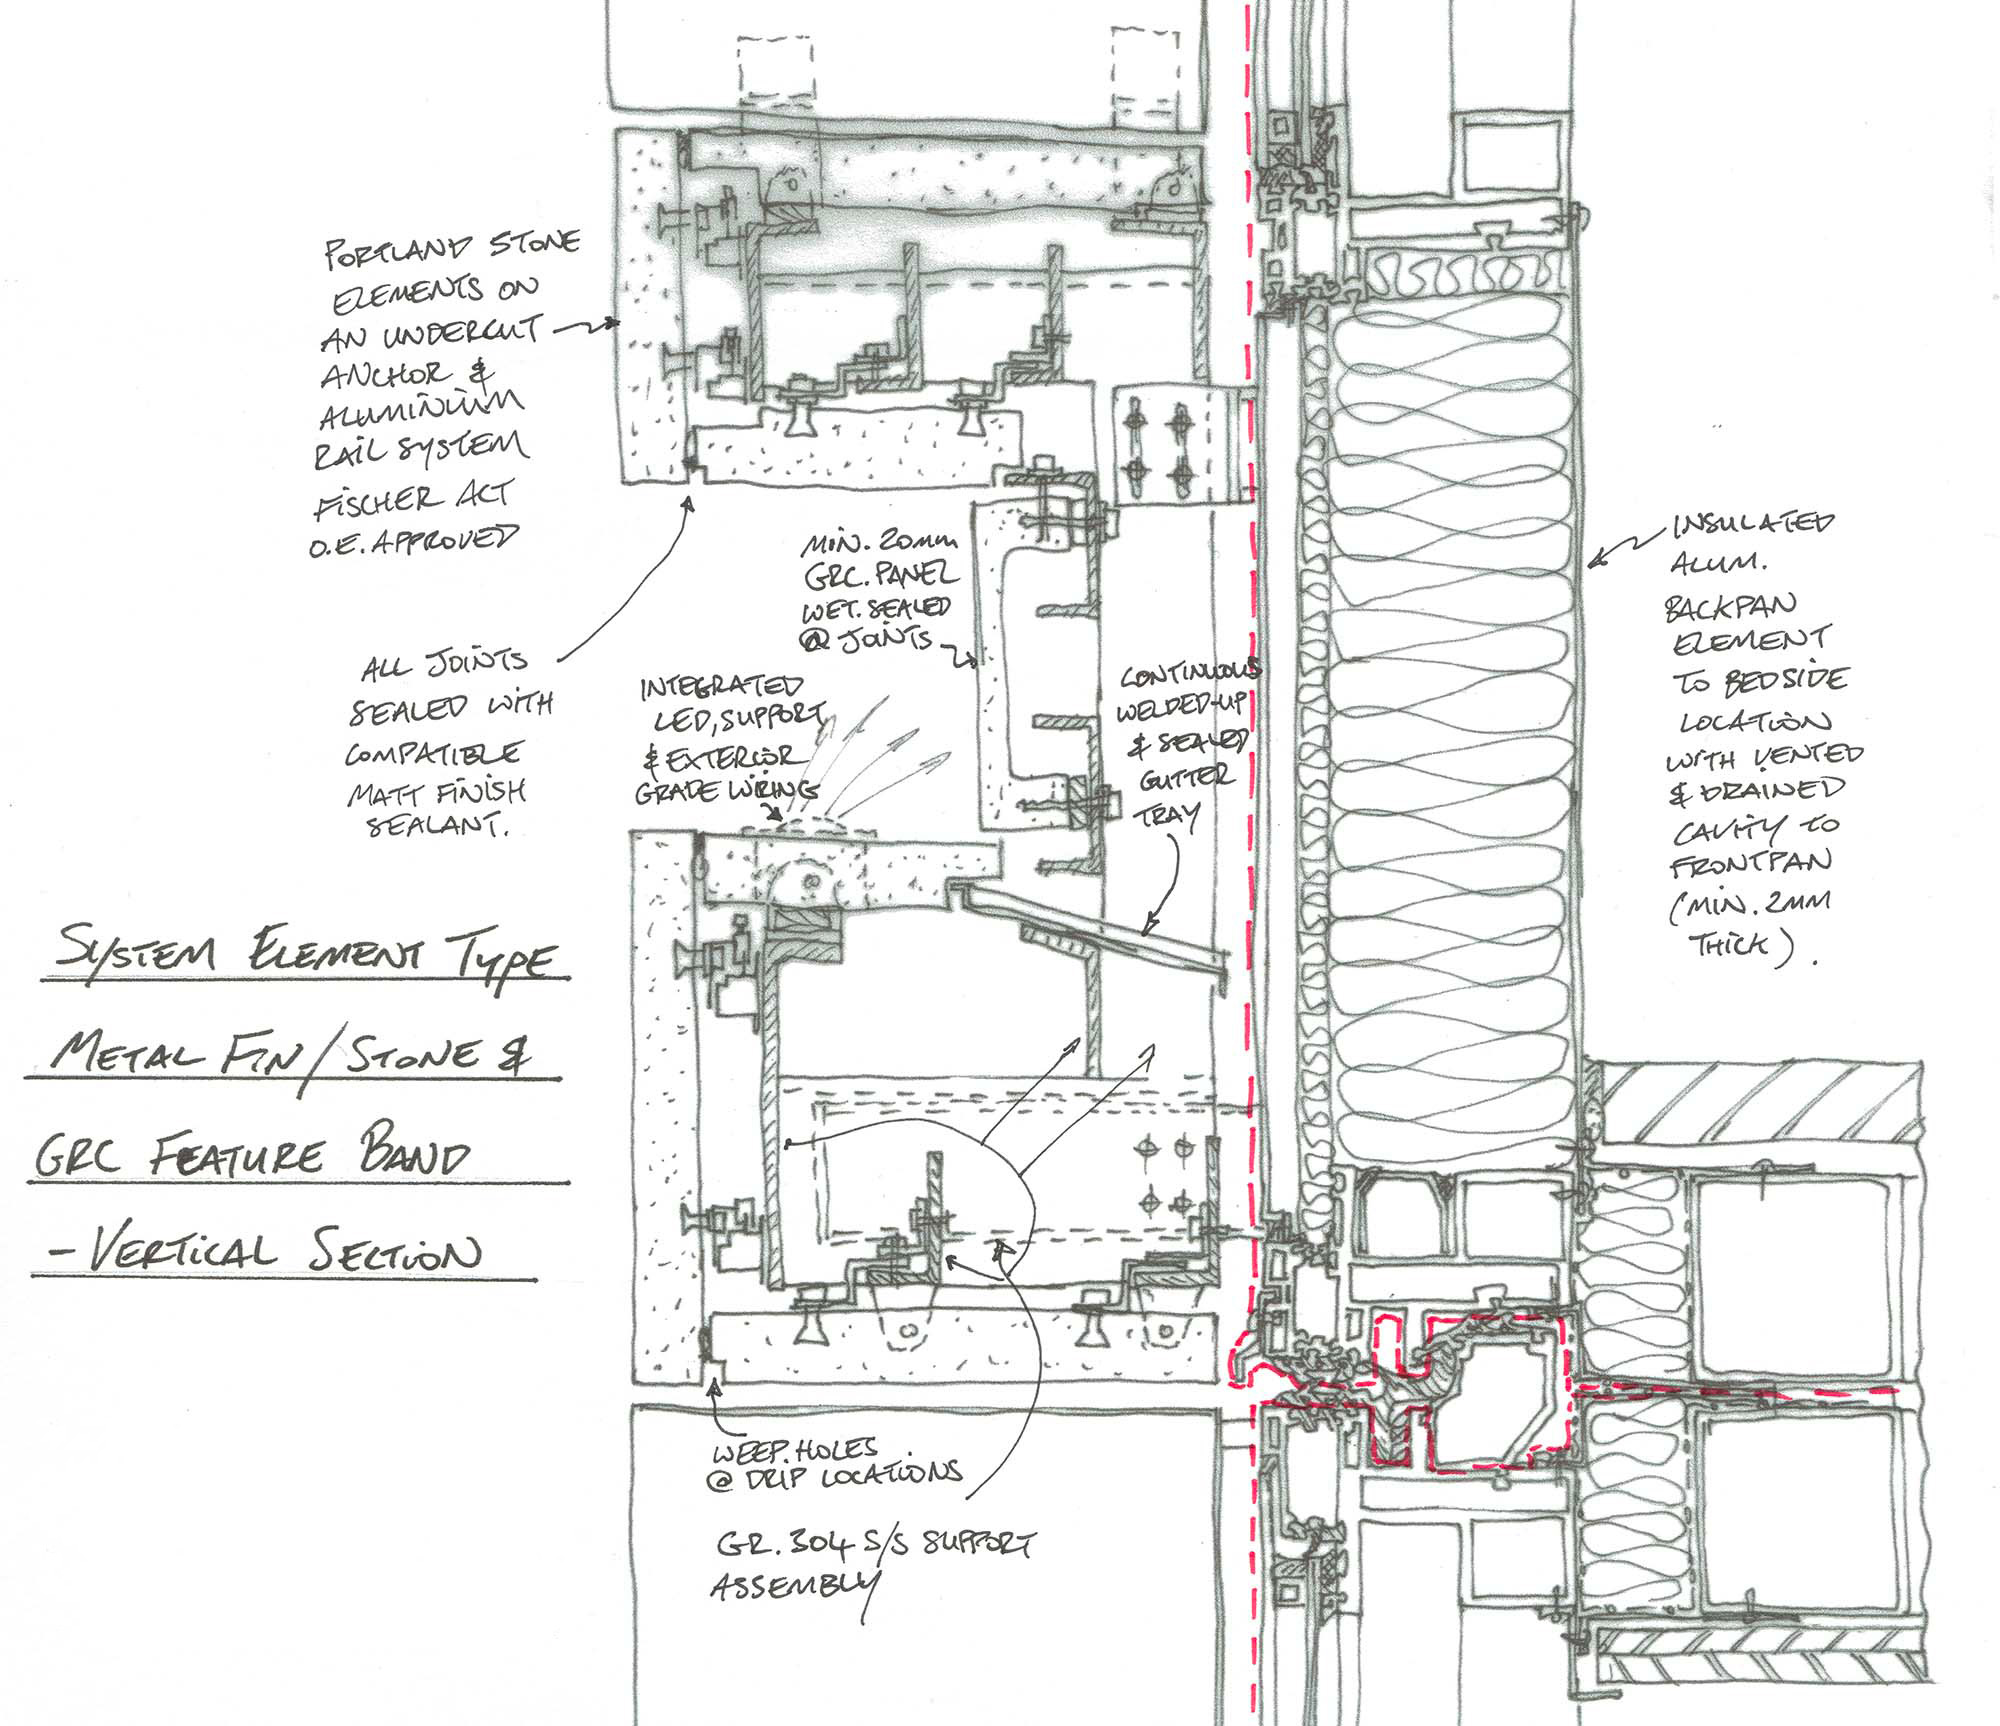 PORTLAND STONE
ELEMENTS ON
AN UNDERCUT
ANCHOR &
ALUMINIUM
RAIL SYSTEM
FISCHER ACT
O.E. APPROVED
ALL JOINTS
SEALED WITH
COMPATIBLE
MATT FINISH
SEALANT.
MIN. 20mm
GRC. PANEL
WET. SEALED
@ JOINTS
INTEGRATED
LED, SUPPORT
& EXTERIOR
GRADE WIRING
CONTINUOUS
WELDED-UP
& SEALED
GUTTER
TRAY
INSULATED
ALUM.
BACKPAN
ELEMENT
TO BEDSIDE
LOCATION
WITH VENTED
& DRAINED
CAVITY TO
FRONTPAN
(MIN. 2MM
THICK).
SYSTEM ELEMENT TYPE
METAL FIN/STONE &
GRC FEATURE BAND
- VERTICAL SECTION
WEEP. HOLES
@ DRIP LOCATIONS
GR. 304 S/S SUPPORT
ASSEMBLY